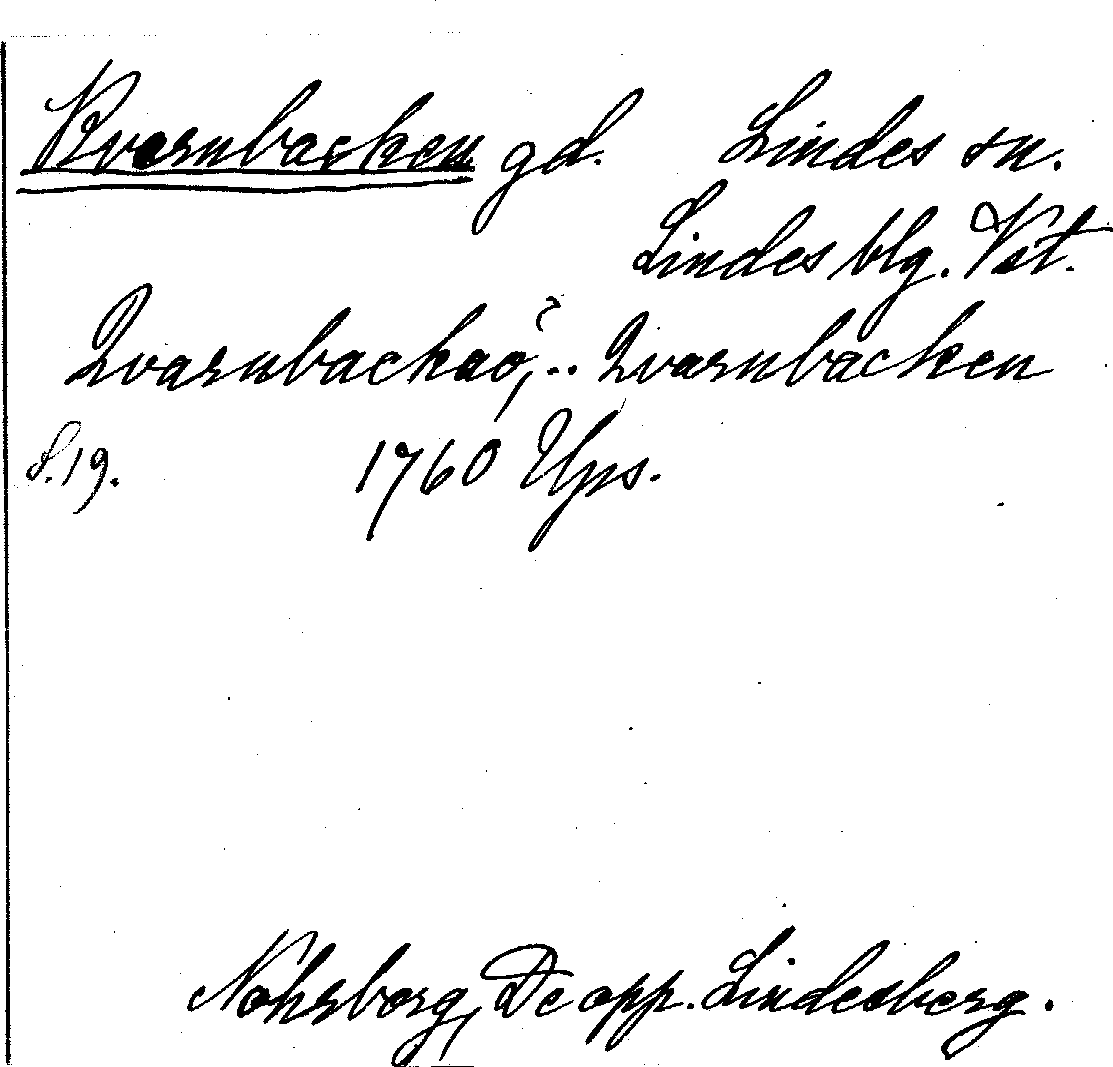 Kvarnbacken gd. Lindes sn.
Lindes blg. Vst.
Qvarnbackaō, .. Qvarnbacken
S.19. 1760 Ups.
Nohrborg, De opp. Lindesberg.